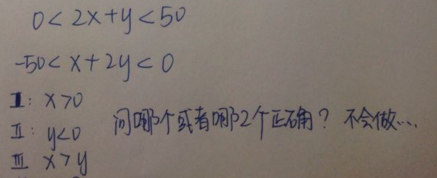 0<2x+y<50
-50<x+2y<0
I: x>0
II: y<0 问哪个或者哪2个正确? 不会做...
III x>y